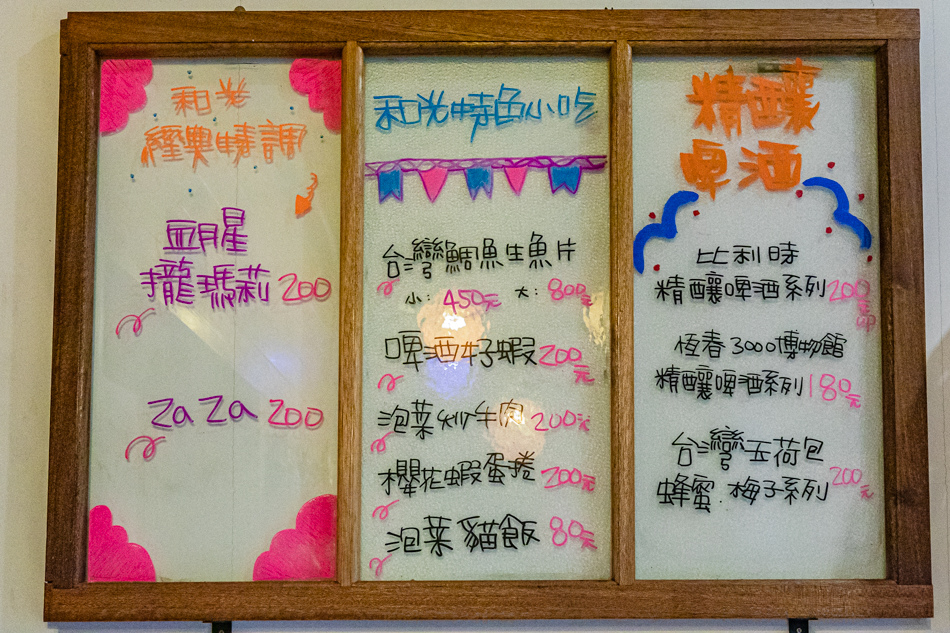 和光
經典特調
血腥
攏瑪莉 200
ZaZa 200
和光特色小吃
台灣鯛魚生魚片
小: 450元 大: 800元
啤酒蚵蝦 200元
泡菜炒牛肉 200元
櫻花蝦蛋捲 200元
泡菜貓飯 80元
精釀
啤酒
比利時
精釀啤酒系列 200元
恆春3000博物館
精釀啤酒系列 180元
台灣五荷包
蜂蜜.梅子系列 200元